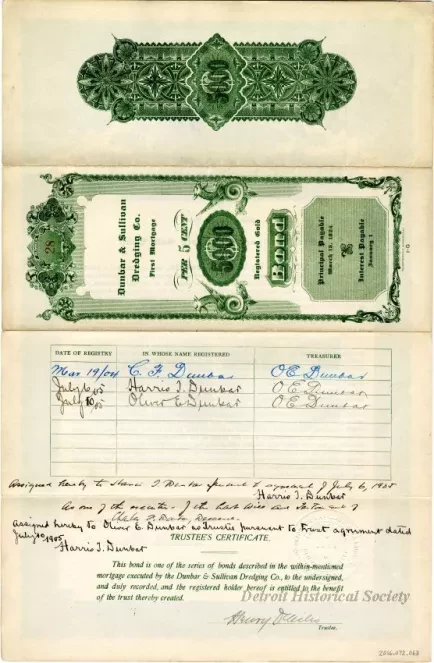 5000
28
Dunbar & Sullivan
Dredging Co.
First Mortgage
PER 5 CENT
5000
Registered Gold
Bond
Principal Payable
March 15, 1924
Interest Payable
January 1
DATE OF REGISTRY IN WHOSE NAME REGISTERED TREASURER
Mar 19/04 C. F. Dunbar O E Dunbar
July 6/05 Harris T. Dunbar O E Dunbar
July 10/05 Oliver E. Dunbar O E Dunbar
Assigned hereby to Harris T Dunbar pursuant to agreement of July 6, 1905
Harris T. Dunbar
As one of the executors of the last Will and Testament of
Dunbar, Deceased
assigned hereby to Oliver E. Dunbar as trustee pursuant to trust agreement dated
July 10 1905.
Harris T. Dunbar
TRUSTEE'S CERTIFICATE.
This bond is one of the series of bonds described in the within-mentioned
mortgage executed by the Dunbar & Sullivan Dredging Co., to the undersigned,
and duly recorded, and the registered holder hereof is entitled to the benefit
of the trust thereby created.
Henry
Trustee.
Detroit Historical Society